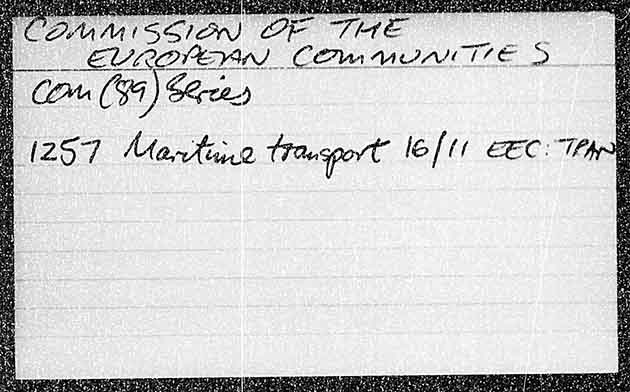 COMMISSION OF THE
EUROPEAN COMMUNITIES
COM (89) Series
1257 Maritime transport 16/11 EEC: TRAN